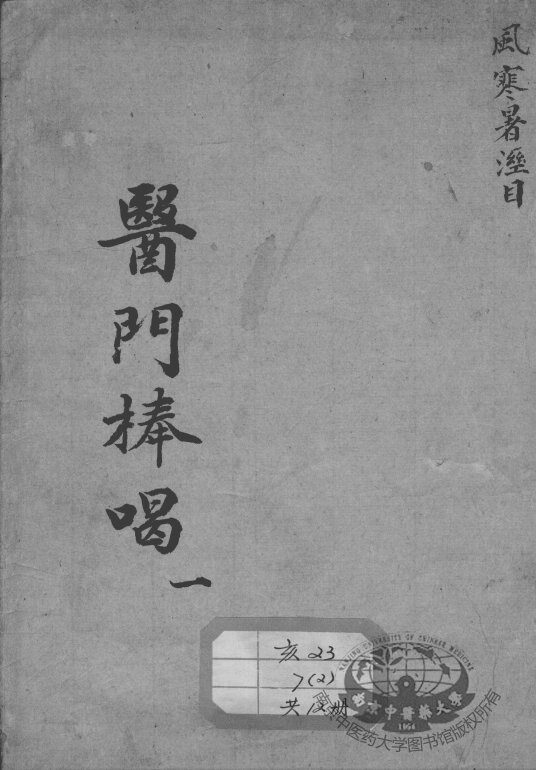 風寒暑溼目
醫門棒喝
一
亥 23
7(2)
共 12 册
NANJING UNIVERSITY OF CHINESE MEDICINE
南京中醫藥大學
南京中医药大学图书馆版权所有